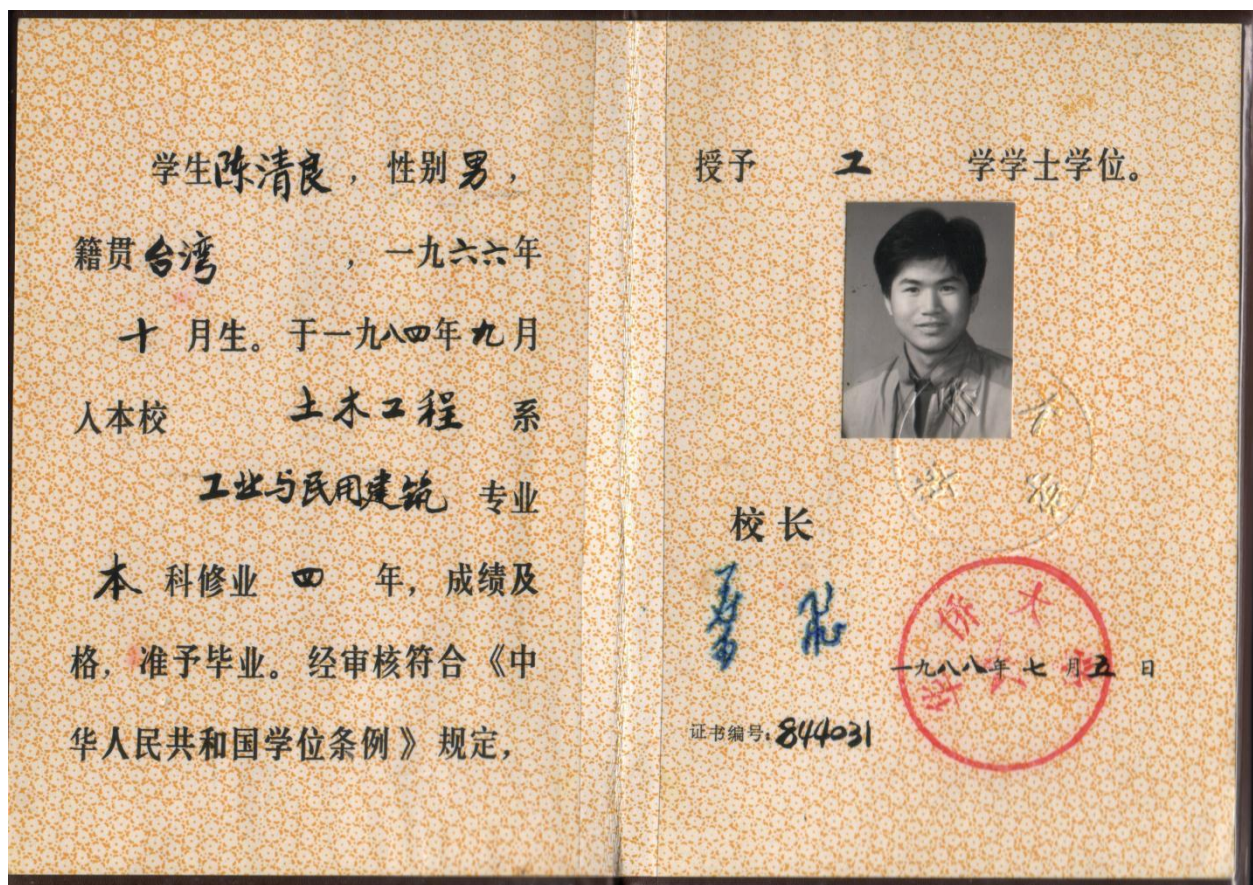 学生陈清良，性别男，
籍贯台湾，一九六六年
十月生。于一九八四年九月
入本校 土木工程 系
工业与民用建筑 专业
本科修业 四 年，成绩及
格，准予毕业。经审核符合《中
华人民共和国学位条例》规定，
授予 工 学学士学位。
校长
一九八八年七月五日
证书编号：844031